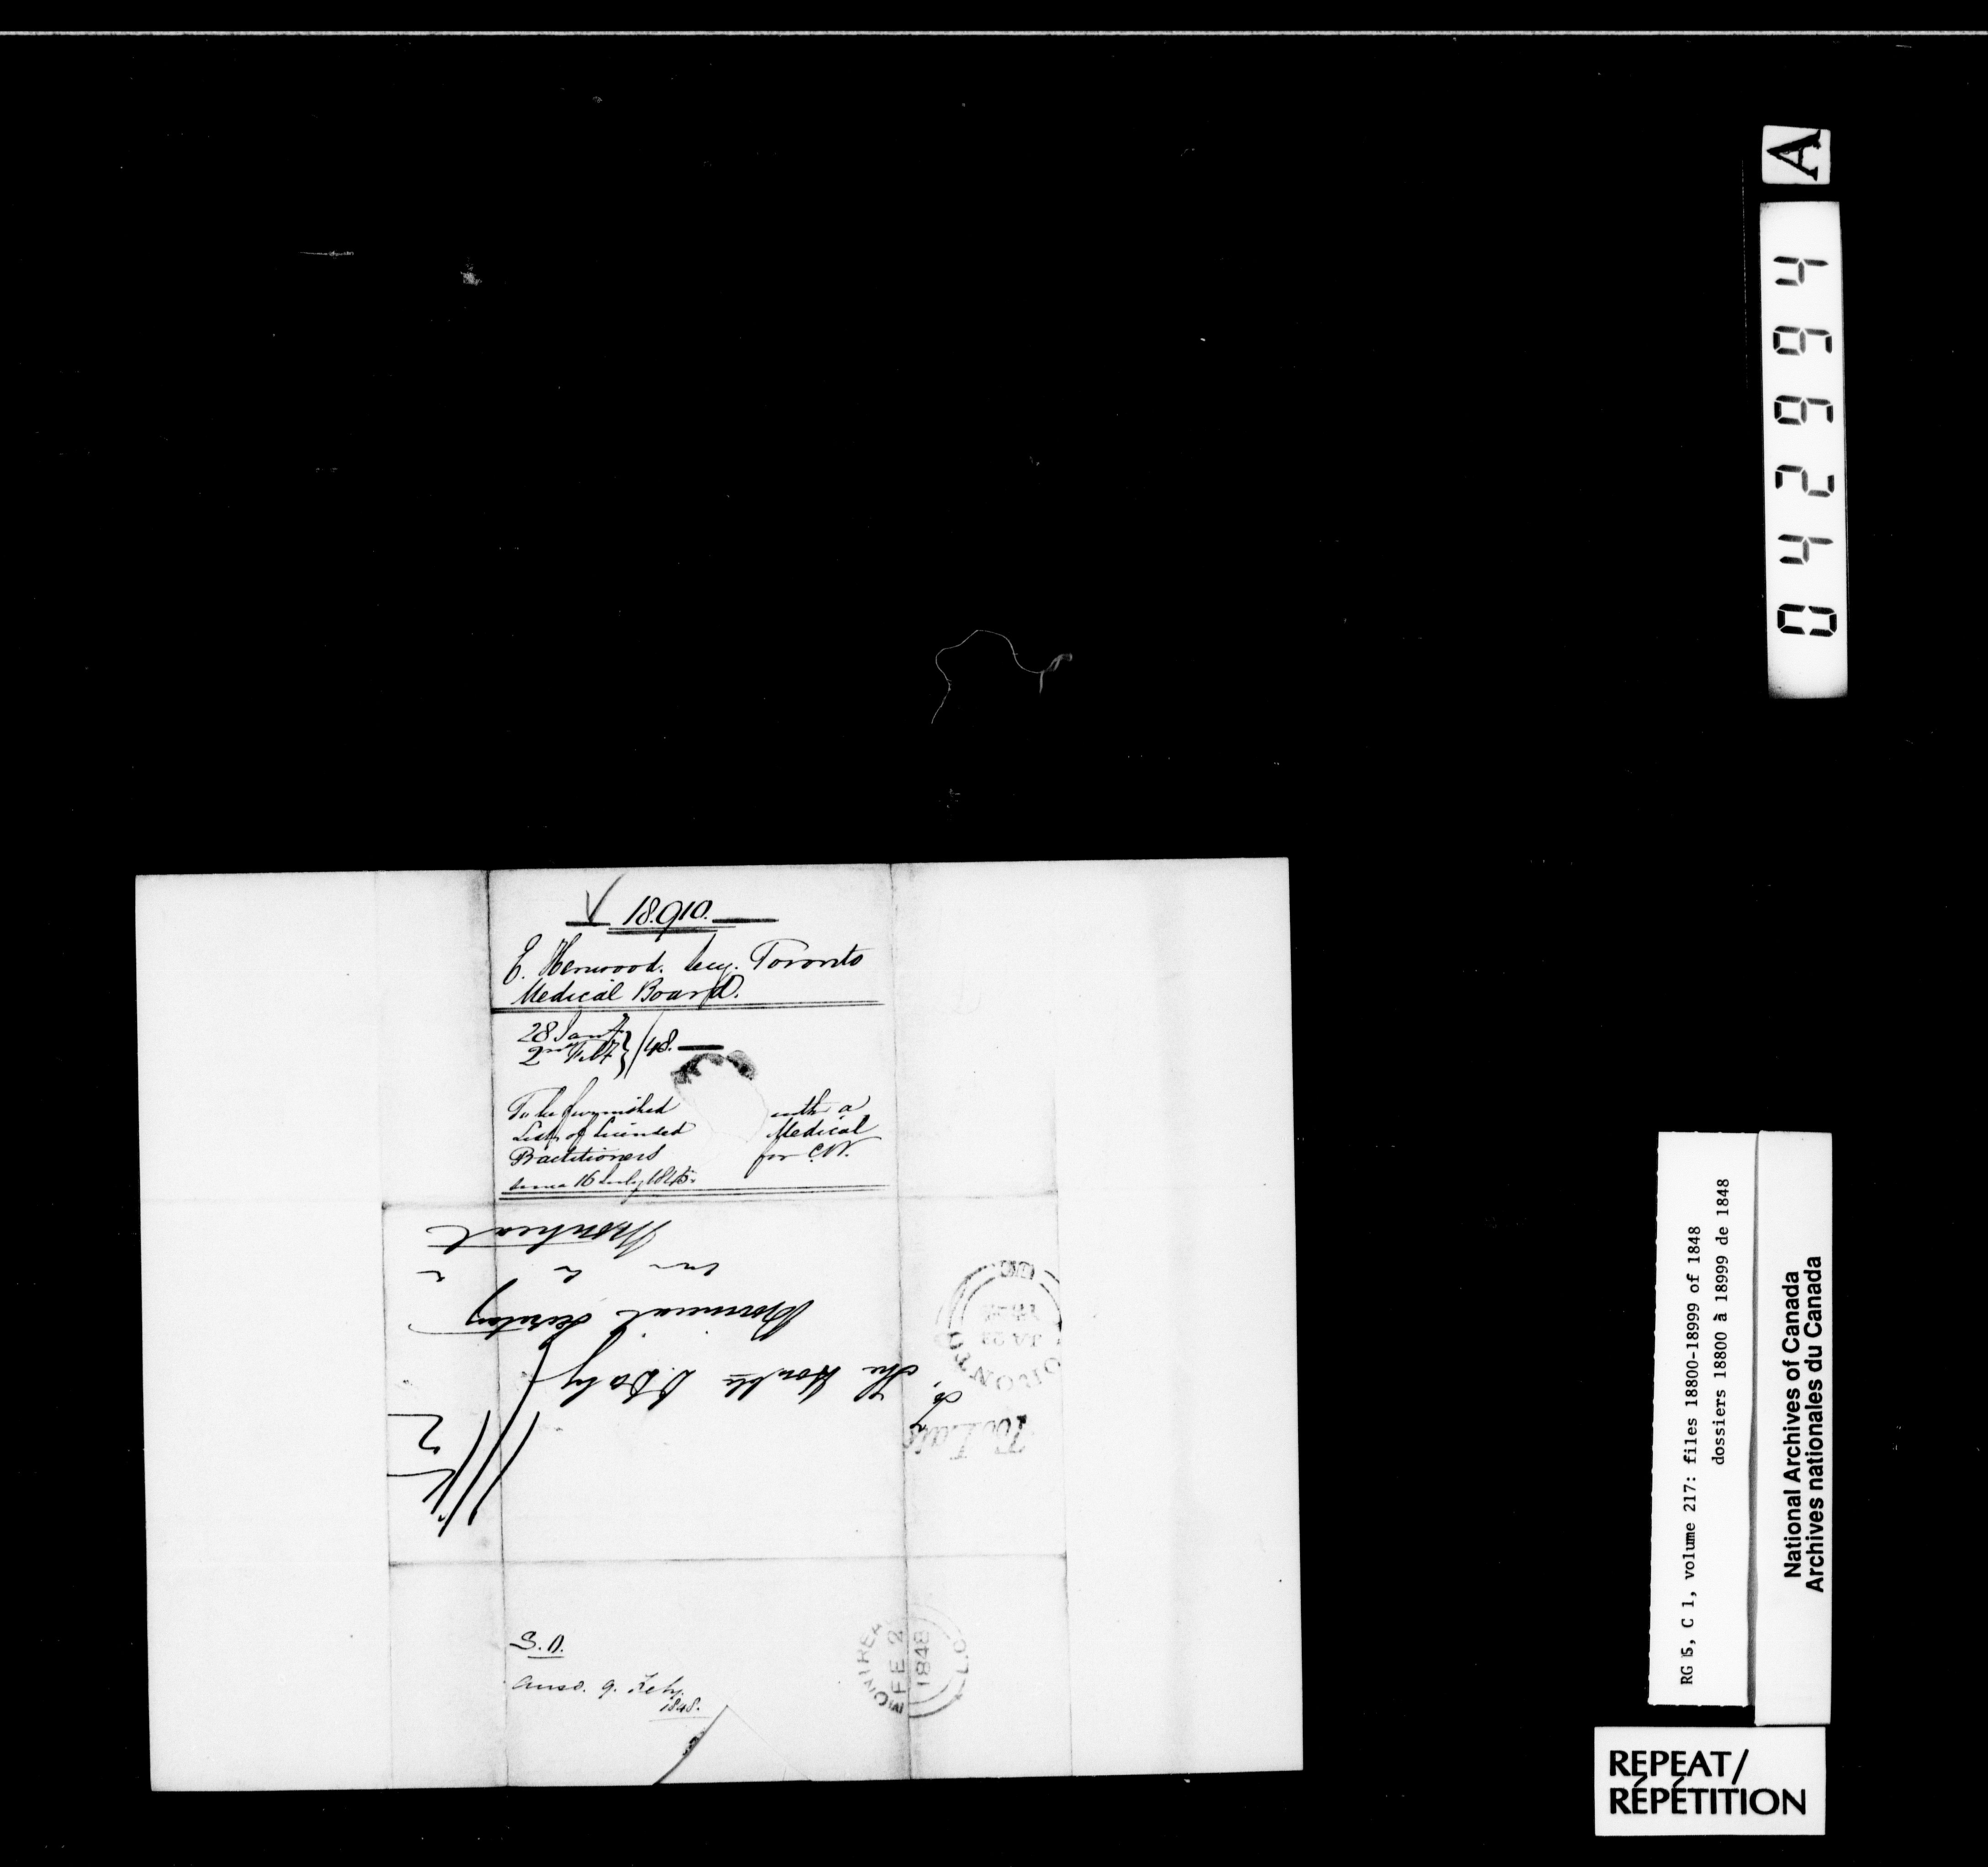 18.910.
E. Henwood. Secy. Toronto
Medical Board.
28 Jany
2nd Feby } /48.
To be furnished with a
List of licensed Medical
Practitioners for C.W.
since 16 July 1845.
To,
The Honble D. Daly
Provincial Secretary
Montreal
Too Late
TORONTO
JA 28
MONTREAL
FE 2
1848
L.C
S.D.
Answ. 9. Feby.
1848.
A
046664
RG 5, C 1, volume 217: files 18800-18999 of 1848
dossiers 18800 à 18999 de 1848
National Archives of Canada
Archives nationales du Canada
REPEAT/
RÉPÉTITION